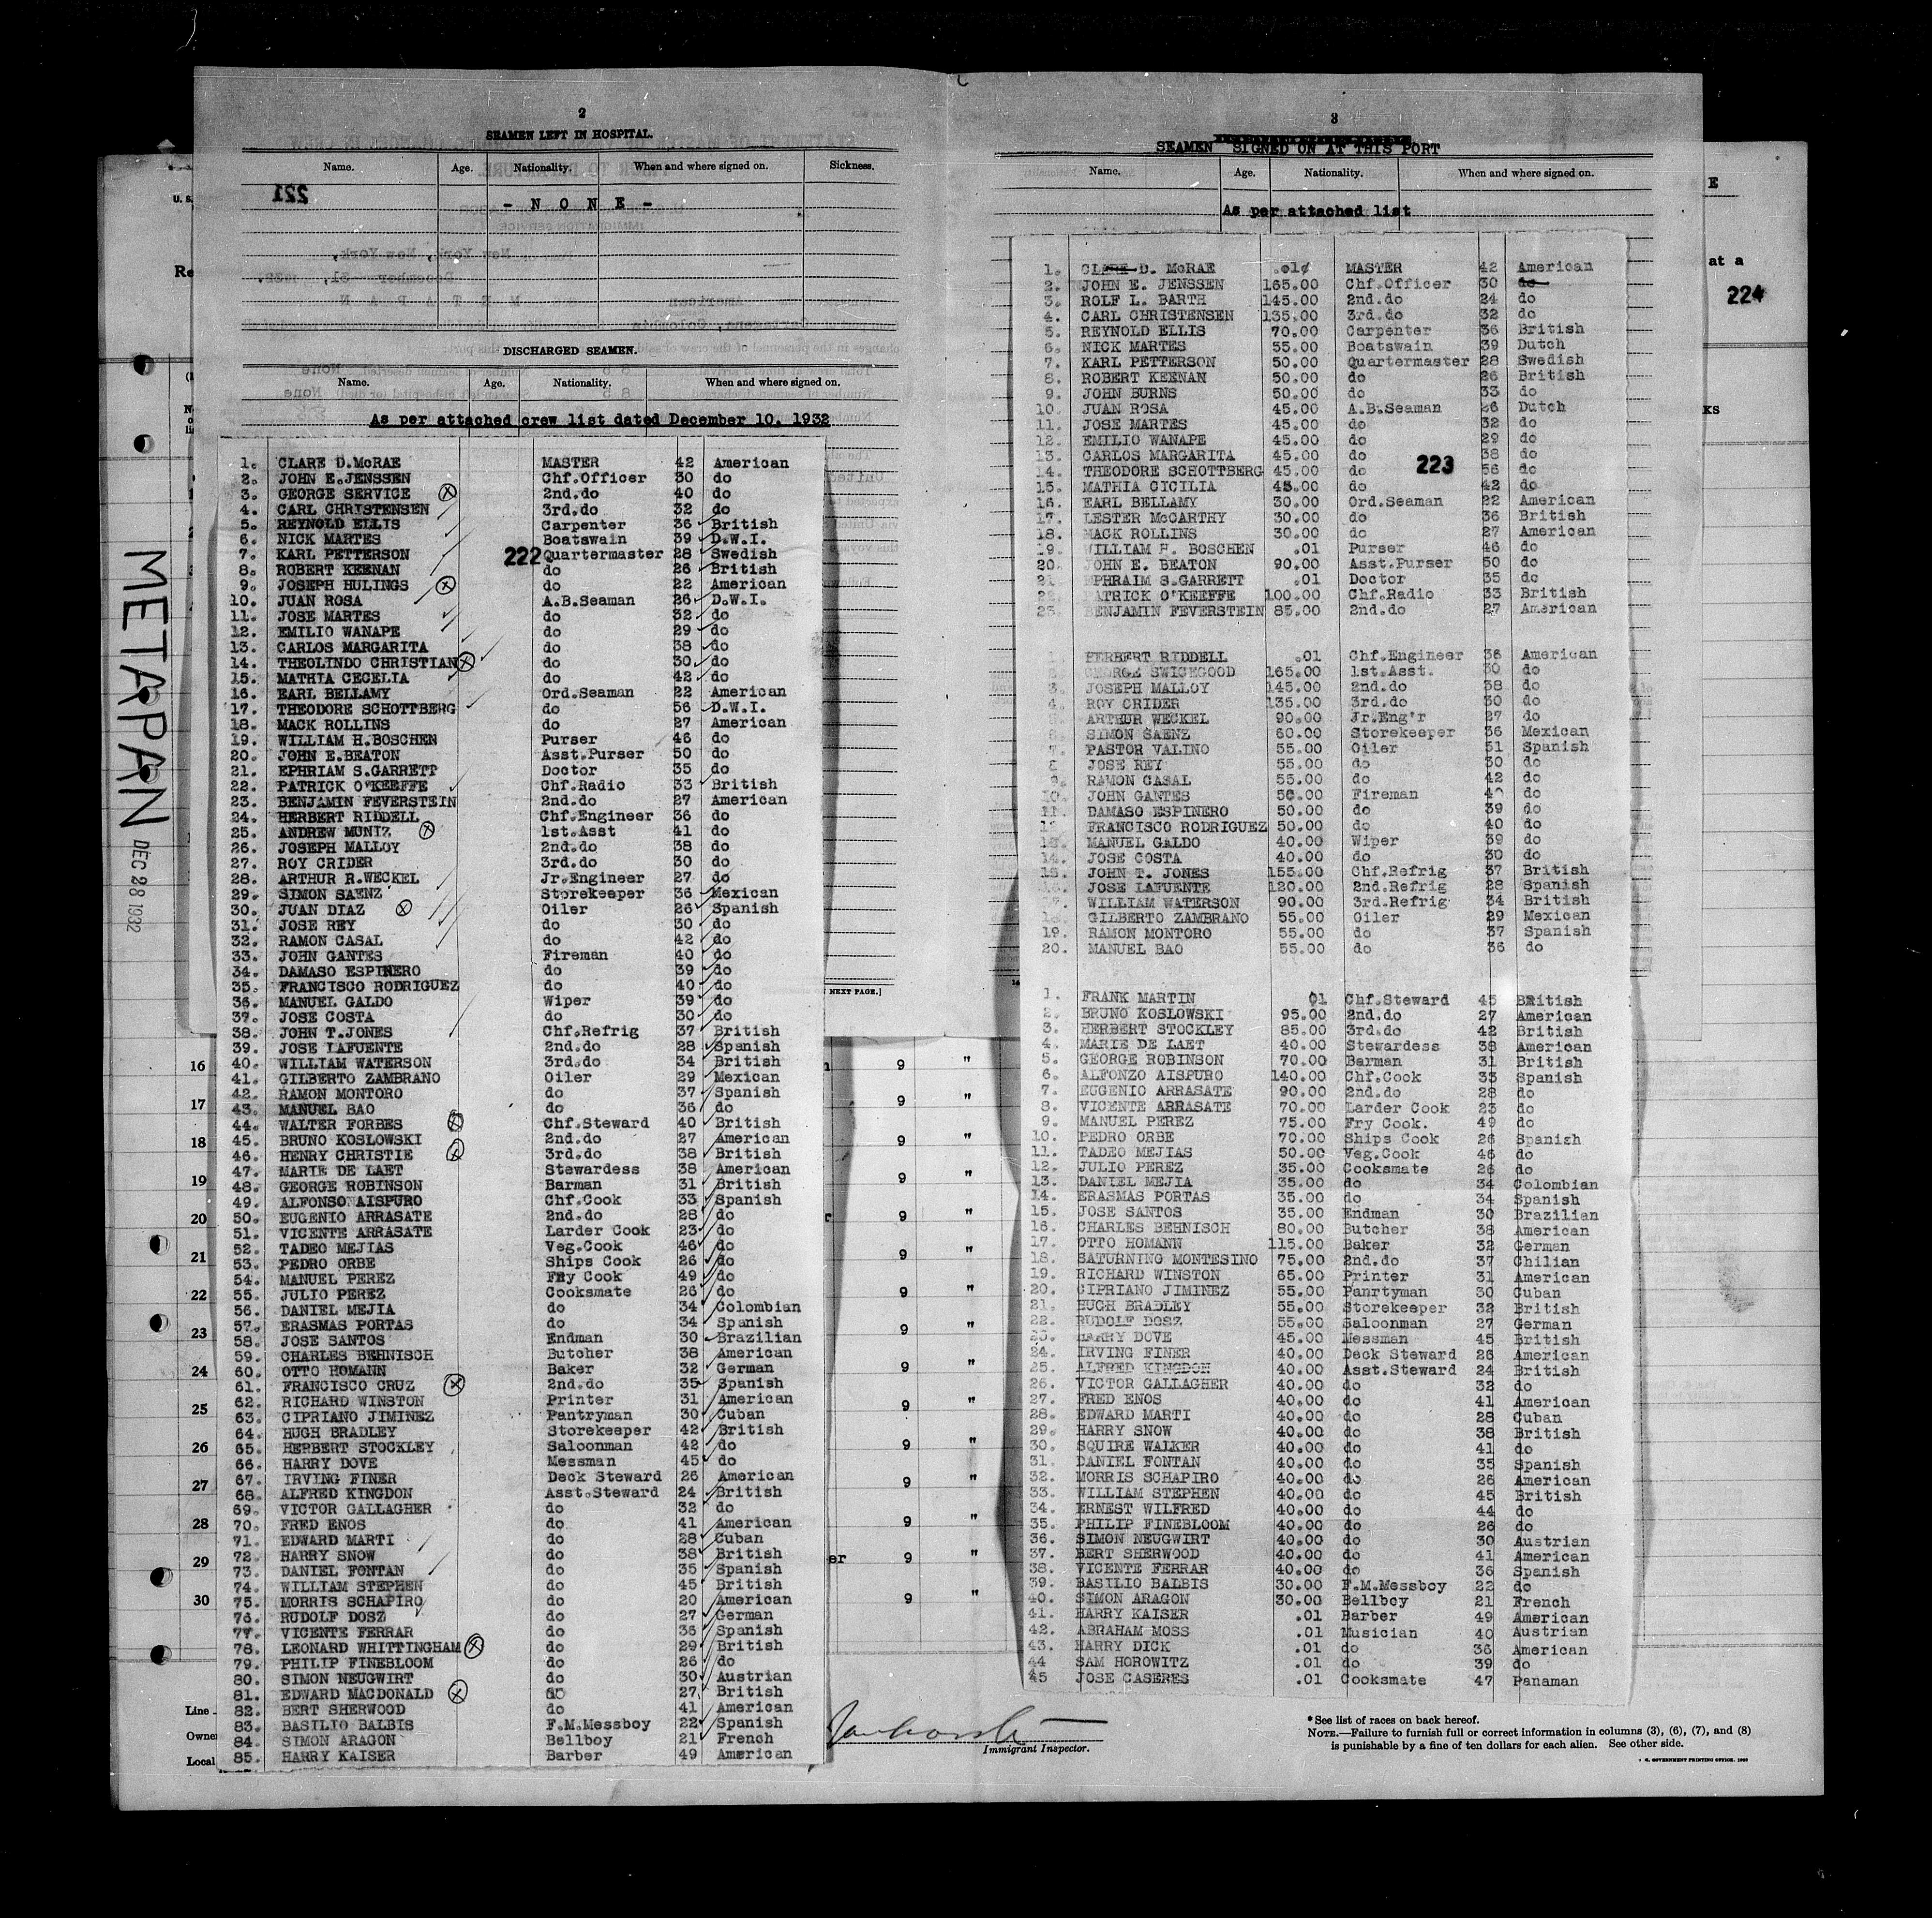 2
SEAMEN LEFT IN HOSPITAL.
Name. Age. Nationality. When and where signed on. Sickness.
221
- N O N E -
DISCHARGED SEAMEN.
Name. Age. Nationality. When and where signed on.
As per attached crew list dated December 10, 1932
1. CLARE D.McRAE MASTER 42 American
2. JOHN E.JENSSEN Chf.Officer 30 do
3. GEORGE SERVICE 2nd.do 40 do
4. CARL CHRISTENSEN 3rd.do 32 do
5. REYNOLD ELLIS Carpenter 36 British
6. NICK MARTES Boatswain 39 D.W.I.
7. KARL PETTERSON 222 Quartermaster 28 Swedish
8. ROBERT KEENAN do 26 British
9. JOSEPH HULINGS do 22 American
10. JUAN ROSA A.B.Seaman 26 D.W.I.
11. JOSE MARTES do 32 do
12. EMILIO WANAPE do 29 do
13. CARLOS MARGARITA do 38 do
14. THEOLINDO CHRISTIAN do 30 do
15. MATHIA CECELIA do 42 do
16. EARL BELLAMY Ord.Seaman 22 American
17. THEODORE SCHOTTBERG do 56 D.W.I.
18. MACK ROLLINS do 27 American
19. WILLIAM H.BOSCHEN Purser 46 do
20. JOHN E.BEATON Asst.Purser 50 do
21. EPHRIAM S.GARRETT Doctor 35 do
22. PATRICK O'KEEFFE Chf.Radio 33 British
23. BENJAMIN FEVERSTEIN 2nd.do 27 American
24. HERBERT RIDDELL Chf.Engineer 36 do
25. ANDREW MUNTZ 1st.Asst 41 do
26. JOSEPH MALLOY 2nd.do 38 do
27. ROY CRIDER 3rd.do 30 do
28. ARTHUR R.WECKEL Jr.Engineer 27 do
29. SIMON SAENZ Storekeeper 36 Mexican
30. JUAN DIAZ Oiler 26 Spanish
31. JOSE REY do 30 do
32. RAMON CASAL do 42 do
33. JOHN GANTES Fireman 40 do
34. DAMASO ESPINERO do 39 do
35. FRANCISCO RODRIGUEZ do 40 do
36. MANUEL GALDO Wiper 39 do
37. JOSE COSTA do 30 do
38. JOHN T.JONES Chf.Refrig 37 British
39. JOSE LAFUENTE 2nd.do 28 Spanish
40. WILLIAM WATERSON 3rd.do 34 British
41. GILBERTO ZAMBRANO Oiler 29 Mexican
42. RAMON MONTORO do 37 Spanish
43. MANUEL BAO do 36 do
44. WALTER FORBES Chf.Steward 40 British
45. BRUNO KOSLOWSKI 2nd.do 27 American
46. HENRY CHRISTIE 3rd.do 38 British
47. MARIE DE LAET Stewardess 38 American
48. GEORGE ROBINSON Barman 31 British
49. ALFONSO AISPURO Chf.Cook 33 Spanish
50. EUGENIO ARRASATE 2nd.do 28 do
51. VICENTE ARRASATE Larder Cook 23 do
52. TADEO MEJIAS Veg.Cook 46 do
53. PEDRO ORBE Ships Cook 26 do
54. MANUEL PEREZ Fry Cook 49 do
55. JULIO PEREZ Cooksmate 26 do
56. DANIEL MEJIA do 34 Colombian
57. ERASMAS PORTAS do 34 Spanish
58. JOSE SANTOS Endman 30 Brazilian
59. CHARLES BEHNISCH Butcher 38 American
60. OTTO HOMANN Baker 32 German
61. FRANCISCO CRUZ 2nd.do 35 Spanish
62. RICHARD WINSTON Printer 31 American
63. CIPRIANO JIMINEZ Pantryman 30 Cuban
64. HUGH BRADLEY Storekeeper 42 British
65. HERBERT STOCKLEY Saloonman 42 do
66. HARRY DOVE Messman 45 do
67. IRVING FINER Deck Steward 26 American
68. ALFRED KINGDON Asst.Steward 24 British
69. VICTOR GALLAGHER do 32 do
70. FRED ENOS do 41 American
71. EDWARD MARTI do 28 Cuban
72. HARRY SNOW do 38 British
73. DANIEL FONTAN do 35 Spanish
74. WILLIAM STEPHEN do 45 British
75. MORRIS SCHAPIRO do 20 American
76. RUDOLF DOSZ do 27 German
77. VICENTE FERRAR do 36 Spanish
78. LEONARD WHITTINGHAM do 29 British
79. PHILIP FINEBLOOM do 26 do
80. SIMON NEUGWIRT do 30 Austrian
81. EDWARD MACDONALD do 27 British
82. BERT SHERWOOD do 41 American
83. BASILIO BALBIS F.M.Messboy 22 Spanish
84. SIMON ARAGON Bellboy 21 French
85. HARRY KAISER Barber 49 American
METAPAN DEC 28 1932
3
SEAMEN SIGNED ON AT THIS PORT
Name. Age. Nationality. When and where signed on.
As per attached list
1. CLARE D. McRAE .01 MASTER 42 American
2. JOHN E. JENSSEN 165.00 Chf.Officer 30 do
3. ROLF L. BARTH 145.00 2nd.do 24 do
4. CARL CHRISTENSEN 135.00 3rd.do 32 do
5. REYNOLD ELLIS 70.00 Carpenter 36 British
6. NICK MARTES 55.00 Boatswain 39 Dutch
7. KARL PETTERSON 50.00 Quartermaster 28 Swedish
8. ROBERT KEENAN 50.00 do 26 British
9. JOHN BURNS 50.00 do 33 do
10. JUAN ROSA 45.00 A.B.Seaman 26 Dutch
11. JOSE MARTES 45.00 do 32 do
12. EMILIO WANAPE 45.00 do 29 do
13. CARLOS MARGARITA 45.00 do 38 do
14. THEODORE SCHOTTBERG 45.00 do 223 56 do
15. MATHIA CICILIA 45.00 do 42 do
16. EARL BELLAMY 30.00 Ord.Seaman 22 American
17. LESTER McCARTHY 30.00 do 36 British
18. MACK ROLLINS 30.00 do 27 American
19. WILLIAM H. BOSCHEN .01 Purser 46 do
20. JOHN E. BEATON 90.00 Asst.Purser 50 do
21. EPHRAIM S.GARRETT .01 Doctor 35 do
22. PATRICK O'KEEFFE 100.00 Chf.Radio 33 British
23. BENJAMIN FEVERSTEIN 85.00 2nd.do 27 American
1. HERBERT RIDDELL .01 Chf.Engineer 36 American
2. GEORGE SWICEGOOD 165.00 1st.Asst. 30 do
3. JOSEPH MALLOY 145.00 2nd.do 38 do
4. ROY CRIDER 135.00 3rd.do 30 do
5. ARTHUR WECKEL 90.00 Jr.Eng'r 27 do
6. SIMON SAENZ 60.00 Storekeeper 36 Mexican
7. PASTOR VALINO 55.00 Oiler 51 Spanish
8 JOSE REY 55.00 do 30 do
9. RAMON CASAL 55.00 do 42 do
10. JOHN GANTES 50.00 Fireman 40 do
11. DAMASO ESPINERO 50.00 do 39 do
12 FRANCISCO RODRIGUEZ 50.00 do 40 do
13. MANUEL GALDO 40.00 Wiper 39 do
14. JOSE COSTA 40.00 do 30 do
15. JOHN T. JONES 155.00 Chf.Refrig 37 British
16. JOSE LAFUENTE 120.00 2nd.Refrig 28 Spanish
17. WILLIAM WATERSON 90.00 3rd.Refrig 34 British
18. GILBERTO ZAMBRANO 55.00 Oiler 29 Mexican
19. RAMON MONTORO 55.00 do 37 Spanish
20. MANUEL BAO 55.00 do 36 do
1. FRANK MARTIN 01 Chf.Steward 45 British
2. BRUNO KOSLOWSKI 95.00 2nd.do 27 American
3. HERBERT STOCKLEY 85.00 3rd.do 42 British
4. MARIE DE LAET 40.00 Stewardess 38 American
5. GEORGE ROBINSON 70.00 Barman 31 British
6. ALFONZO AISPURO 140.00 Chf.Cook 33 Spanish
7. EUGENIO ARRASATE 90.00 2nd.do 28 do
8. VICENTE ARRASATE 70.00 Larder Cook 23 do
9. MANUEL PEREZ 75.00 Fry Cook. 49 do
10. PEDRO ORBE 70.00 Ships Cook 26 Spanish
11. TADEO MEJIAS 50.00 Veg.Cook 46 do
12. JULIO PEREZ 35.00 Cooksmate 26 do
13. DANIEL MEJIA 35.00 do 34 Colombian
14. ERASMAS PORTAS 35.00 do 34 Spanish
15. JOSE SANTOS 35.00 Endman 30 Brazilian
16. CHARLES BEHNISCH 80.00 Butcher 38 American
17. OTTO HOMANN 115.00 Baker 32 German
18. SATURNINO MONTESINO 75.00 2nd.do 37 Chilian
19. RICHARD WINSTON 65.00 Printer 31 American
20. CIPRIANO JIMINEZ 55.00 Panrtyman 30 Cuban
21. HUGH BRADLEY 55.00 Storekeeper 32 British
22. RUDOLF DOSZ 55.00 Saloonman 27 German
23. HARRY DOVE 45.00 Messman 45 British
24. IRVING FINER 40.00 Deck Steward 26 American
25. ALFRED KINGDON 40.00 Asst.Steward 24 British
26. VICTOR GALLAGHER 40.00 do 32 do
27. FRED ENOS 40.00 do 41 American
28. EDWARD MARTI 40.00 do 28 Cuban
29. HARRY SNOW 40.00 do 38 British
30. SQUIRE WALKER 40.00 do 41 do
31. DANIEL FONTAN 40.00 do 35 Spanish
32. MORRIS SCHAPIRO 40.00 do 26 American
33. WILLIAM STEPHEN 40.00 do 45 British
34. ERNEST WILFRED 40.00 do 44 do
35. PHILIP FINEBLOOM 40.00 do 26 do
36. SIMON NEUGWIRT 40.00 do 30 Austrian
37. BERT SHERWOOD 40.00 do 41 American
38. VICENTE FERRAR 40.00 do 36 Spanish
39. BASILIO BALBIS 30.00 F.M.Messboy 22 do
40. SIMON ARAGON 30.00 Bellboy 21 French
41. HARRY KAISER .01 Barber 49 American
42. ABRAHAM MOSS .01 Musician 40 Austrian
43. HARRY DICK .01 do 36 American
44 SAM HOROWITZ .01 do 39 do
45 JOSE CASERES .01 Cooksmate 47 Panaman
E
at a
224
KS
U. S.
Re
NEXT PAGE.]
16 9 "
17 9 "
18 9 "
19 9 "
20 9 "
21 9 "
22 9 "
23 9 "
24 9 "
25 9 "
26 9 "
27 9 "
28 9 "
29 er 9 "
30 9 "
Line
Owner
Local
Immigrant Inspector.
*See list of races on back hereof.
NOTE.—Failure to furnish full or correct information in columns (3), (6), (7), and (8)
is punishable by a fine of ten dollars for each alien. See other side.